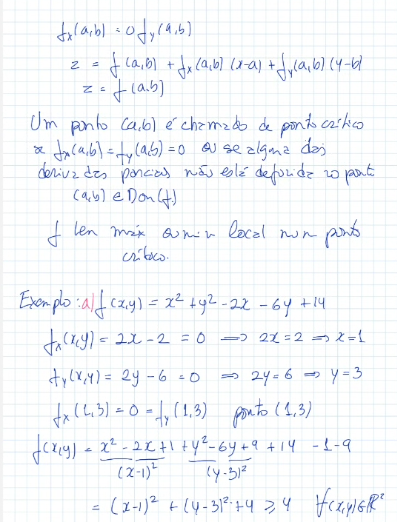 fx(a,b) = 0 fy(a,b)
z = f(a,b) + fx(a,b)(x-a) + fy(a,b)(y-b)
z = f(a.b)
Um ponto (a,b) é chamado de ponto crítico
se fx(a,b) = fy(a,b) = 0 ou se alguma das
derivadas parciais não está definida no ponto
(a,b) ∈ Dom(f)
f tem máx ou min local num ponto
crítico.
Exemplo: a) f(x,y) = x² + y² - 2x - 6y + 14
fx(x,y) = 2x - 2 = 0 ⟹ 2x = 2 ⟹ x = 1
fy(x,y) = 2y - 6 = 0 ⟹ 2y = 6 ⟹ y = 3
fx(1,3) = 0 = fy(1,3) ponto (1,3)
f(x,y) = x² - 2x + 1 + y² - 6y + 9 + 14 - 1 - 9
(x-1)² (y-3)²
= (x-1)² + (y-3)² + 4 ⩾ 4 ∀(x,y)∈ℝ²